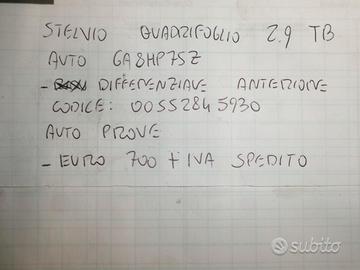 STELVIO QUADRIFOGLIO 2.9 TB
AUTO GA8HP75Z
- DIFFERENZIALE ANTERIORE
CODICE: 00552845930
AUTO PROVE
- EURO 700 + IVA SPEDITO
subito